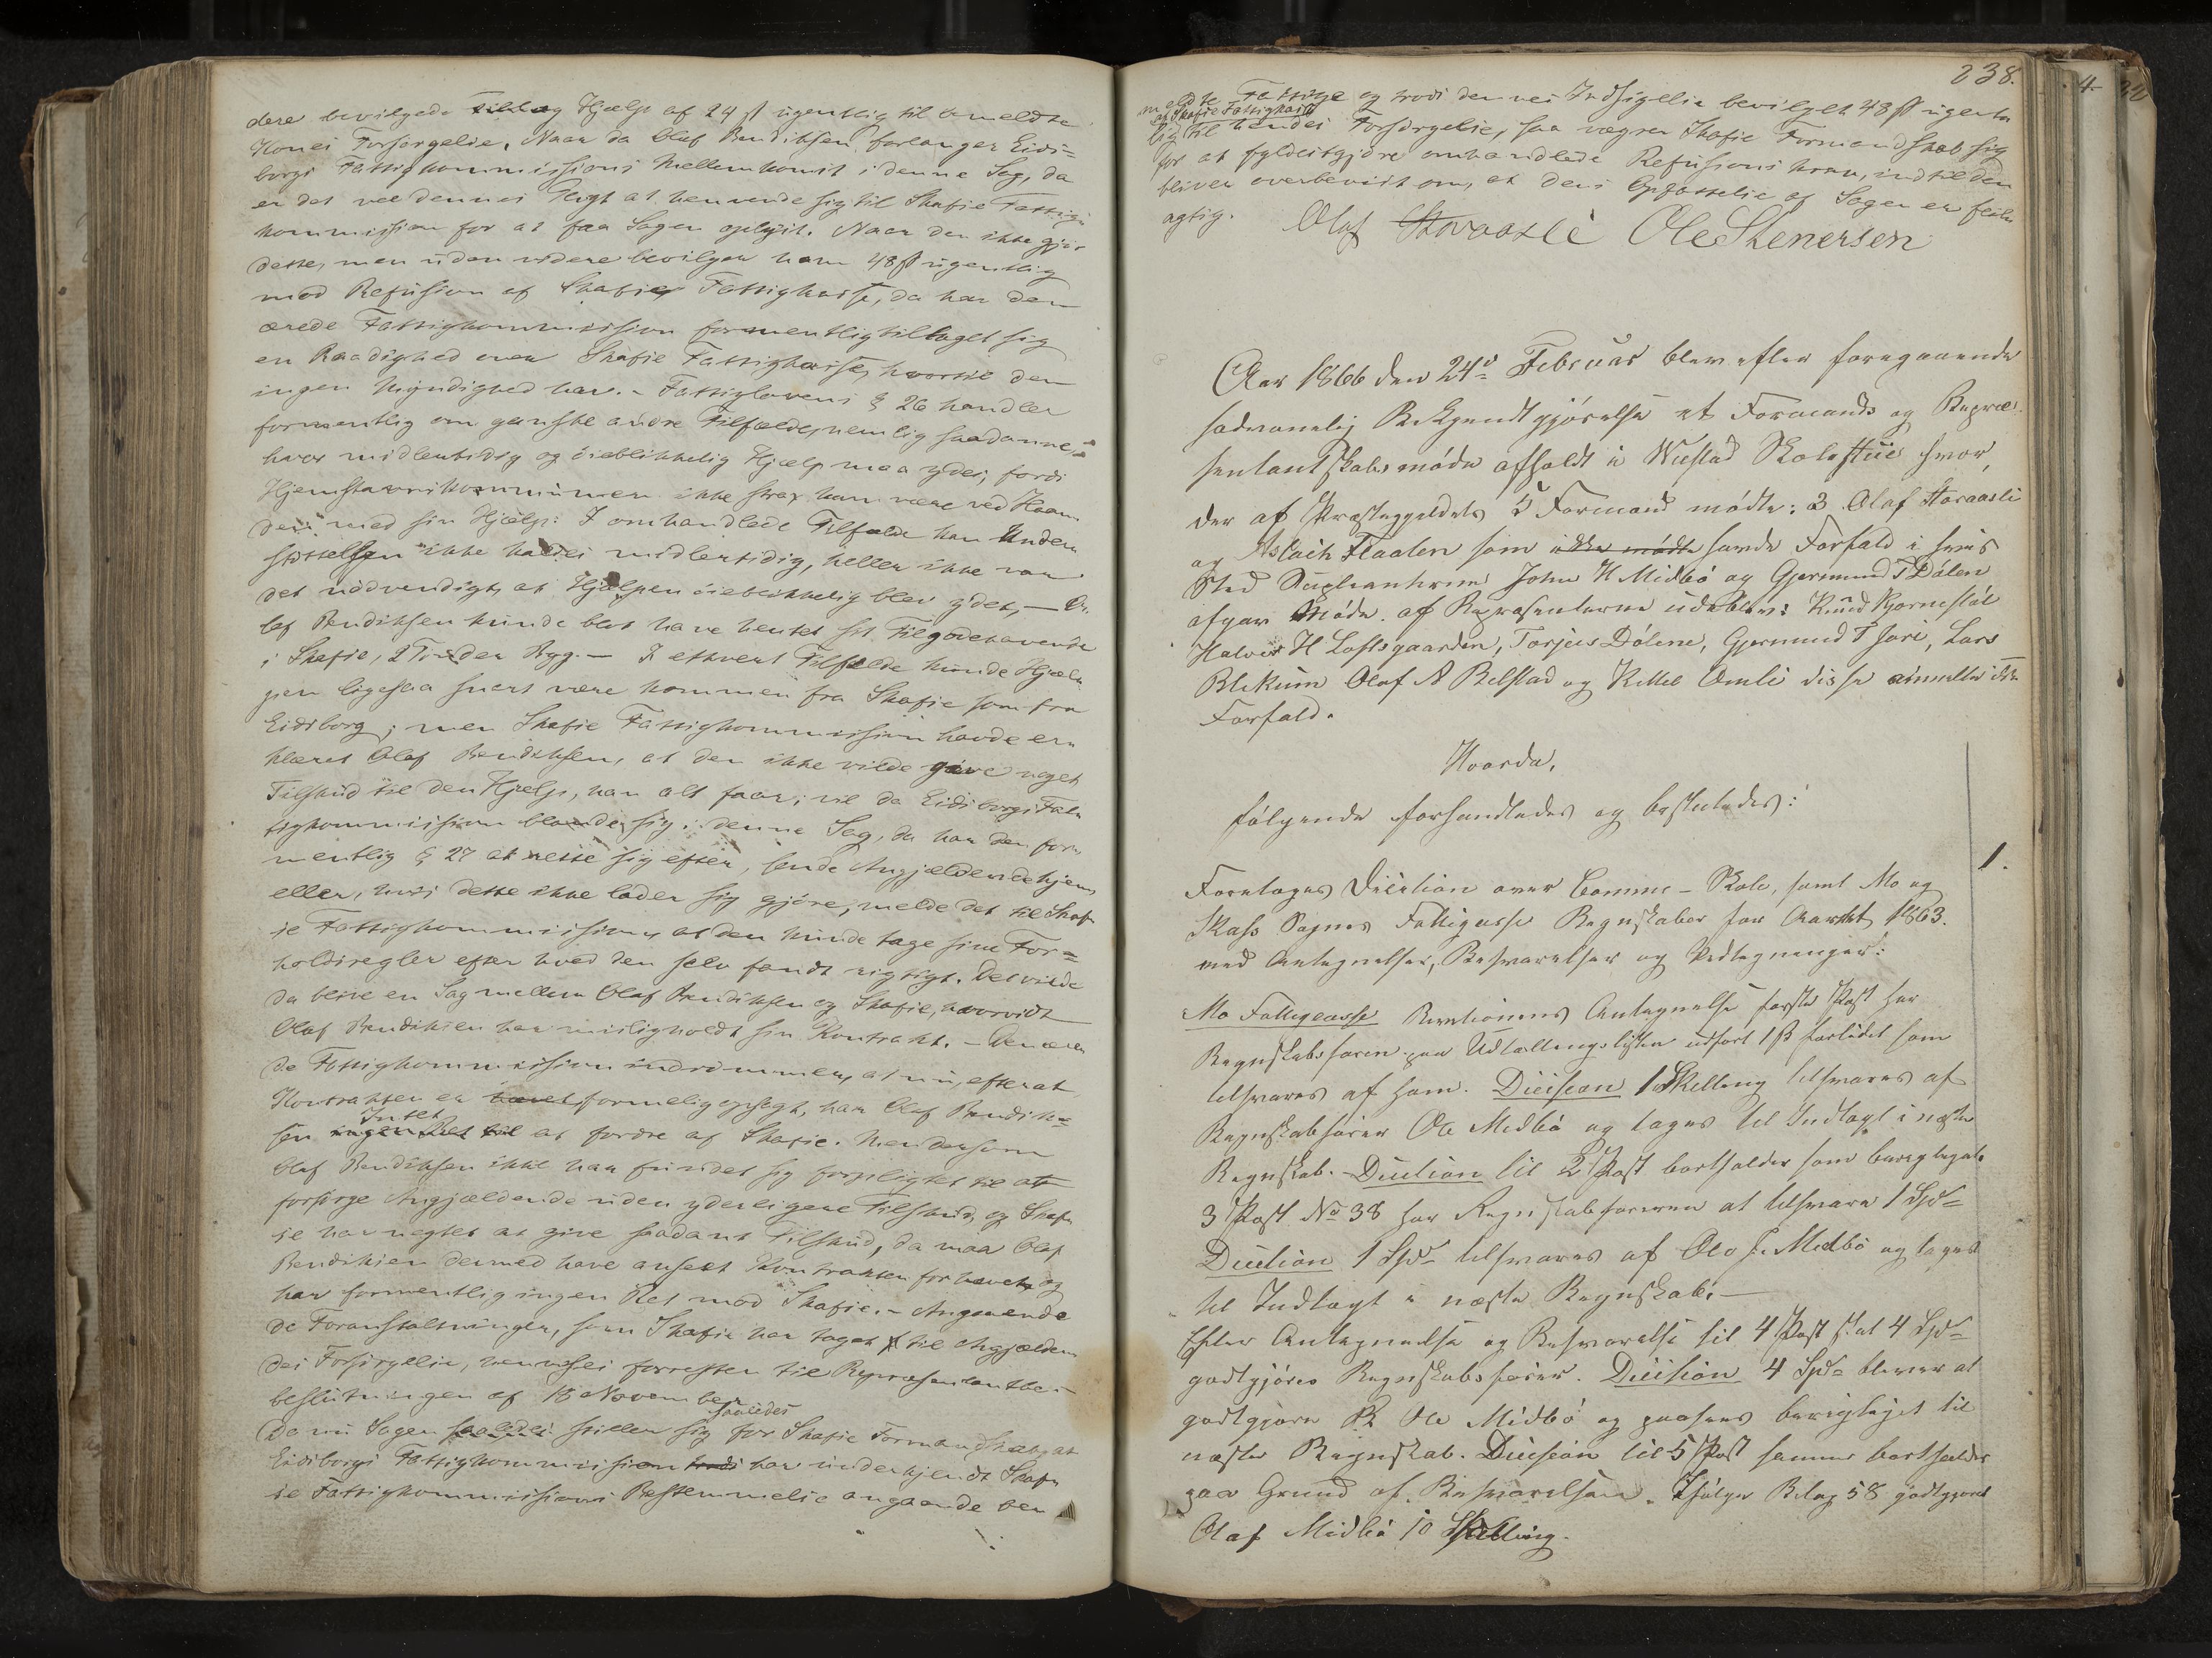 dere bevilgede Tillæg Hjælp af 24 ß ugentlig til ommeldte
Kones Forsørgelse. Naar da Olaf Bendiksen forlanger Eids-
borgs Fattigkommissions Mellemkomst i denne Sag, da
er det vel dennes Pligt at henvende sig til Skafse Fattig-
kommission for at faa Sagen oplyst. Naar den ikke gjør
dette, men uden videre bevilger ham 48 ß ugentlig
mod Refusion af Skafse Fattigkasse, da har den
ærede Fattigkommission formentlig tiltaget sig
en Raadighed over Skafse Fattigkasse, hvortil den
ingen Myndighed har. - Fattiglovens § 26 handler
formentlig om ganske andre Tilfælde, nemlig saadanne,
hvor midlertidig og øieblikkelig Hjælp maa ydes, fordi
Hjemstavnskommunen ikke strax kan være ved Haan-
den med sin Hjælp. I omhandlede Tilfælde kan Under-
støttelsen ikke kaldes midlertidig, heller ikke var
det nødvendigt, at Hjælpen øieblikkelig blev ydet, — O-
laf Bendiksen kunde blot have hentet sit Tilgodehavende
i Skafse, 2 Tønder Byg. — I ethvert Tilfælde kunde Hjæl-
pen ligesaa snart være kommen fra Skafse som fra
Eidsborg; men Skafse Fattigkommission havde er-
klæret Olaf Bendiksen, at den ikke vilde give noget
Tilskud til den Hjælp, han alt faar; vil da Eidsborgs Fat-
tigkommission blande sig i denne Sag, da har den for-
mentlig § 27 at rette sig efter, sende Angjældende hjem
eller, hvis dette ikke lader sig gjøre, melde det til Skaf-
se Fattigkommission, at den kunde tage sine For-
holdsregler efter hvad den selv fandt rigtigt. Det vilde
da blive en Sag mellem Olaf Bendiksen og Skafse, hvorvidt
Olaf Bendiksen har misligholdt sin Kontrakt. - Den ære-
de Fattigkommission indrømmer, at nu, efterat
Kontrakten er formelig opsagt, har Olaf Bendik-
sen Intet at fordre af Skafse. Men dersom
Olaf Bendiksen ikke har fundet sig forpligtet til at
forsørge Angjældende uden yderligere Tilskud, og Skaf-
se har negtet at give saadant Tilskud, da maa Olaf
Bendiksen dermed have anseet Kontrakten for hævet, og
har formentlig ingen Ret mod Skafse. - Angaaende
de Foranstaltninger, som Skafse har taget til Angjælden-
des Forsørgelse, henvises forresten til Repræsentantbe-
slutningen af 18 November.
Da nu Sagen saaledes stiller sig for Skafse Formandskab, at
Eidsborgs Fattigkommission har underkjendt Skaf-
se Fattigkommissions Bestemmelse angaaende bem
238.
meldte Fattige og trods dennes Indsigelse bevilget 48 ß ugent-
af Skafse Fattigkasse
lig til hendes Forsørgelse, saa vægrer Skafse Formandskab sig
for at fyldestgjøre omhandlede Refusionskrav, indtil den
bliver overbevist om, at dens Opfattelse af Sagen er feil-
agtig.
Olaf Storaasli Ole Stenersen
Aar 1866 den 24d Februar blev efter foregaaende
sædvanelig Bekjendtgjørelse et Formands og Repræ-
sentantskabsmøde afholdt i Nustad Skolestue hvor
der af Præstegjeldets 5 Formænd mødte: 3 Olaf Storaasli
og Aslach Flaaten som ikke mødte havde Forfald i hvis
Sted Supleanterne John H Midbø og Gjermund T Dølen
afgav Møde. af Repræsenterne udeblev: Knud Kjørnestøl
Halvor H Loftsgaarden, Torjus Dølene, Gjermund T Jore, Lars
Blekum Olaf A Belstad og Kittel Omli disse anmeldte ikke
Forfald.
Hvorda,
følgende forhandledes og besluttedes:
1.
Foretoges Decision over Comme - Skole, samt Mo og
Skafs Sognes Fattigcasse Regnskaber for Aaret 1863.
med Antegnelser, Besvarelser og Vedtegninger:
Mo Fattigcasse Revitionens Antegnelse første Post har
Regnskabsføren paa Udtællingslisten udført 1 ß forlidet som
tilsvares af ham. Dicision 1 Skilling tilsvares af
Regnskabsfører Ole Midbø og tages til Indtægt i næste
Regnskab. Dicition til 2 Post bortfalder som berigtiget.
3 Post No 38 har Regnskabføreren at tilsvare 1 Spd
Dicition 1 Spd tilsvares af Ole J. Midbø og tages
til Indtægt i næste Regnskab. —
Efter Antegnelse og Besvarelse til 4 Post skal 4 Spd
godtgjøres Regnskabsfører. Dicision 4 Spd bliver at
godtgjøre R Ole Midbø og paasees berigtiget til
næste Regnskab. Dicision til 5 Post samme bortfalder
paa Grund af Besvarelsen. Ifølge Bilag 58 godtgjøres
Olaf Midbø 10 Skilling.